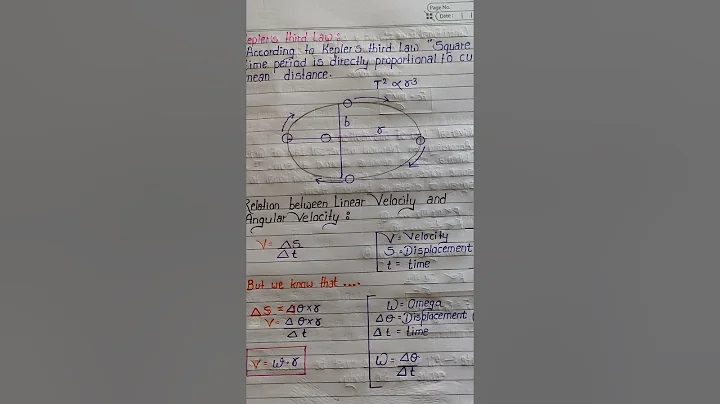 Page No.
Date:
Kepler's third Law:
According to Kepler's third Law "Square
time period is directly proportional to cu
mean distance.
T² ∝ r³
b
r
Relation between Linear Velocity and
Angular Velocity:
V = ΔS
Δt
V = Velocity
S = Displacement
t = time
But we know that ....
ΔS = Δθ×r
V = Δθ×r
Δt
V = ω·r
W = Omega
Δθ = Displacement (
Δt = time
W = Δθ
Δt